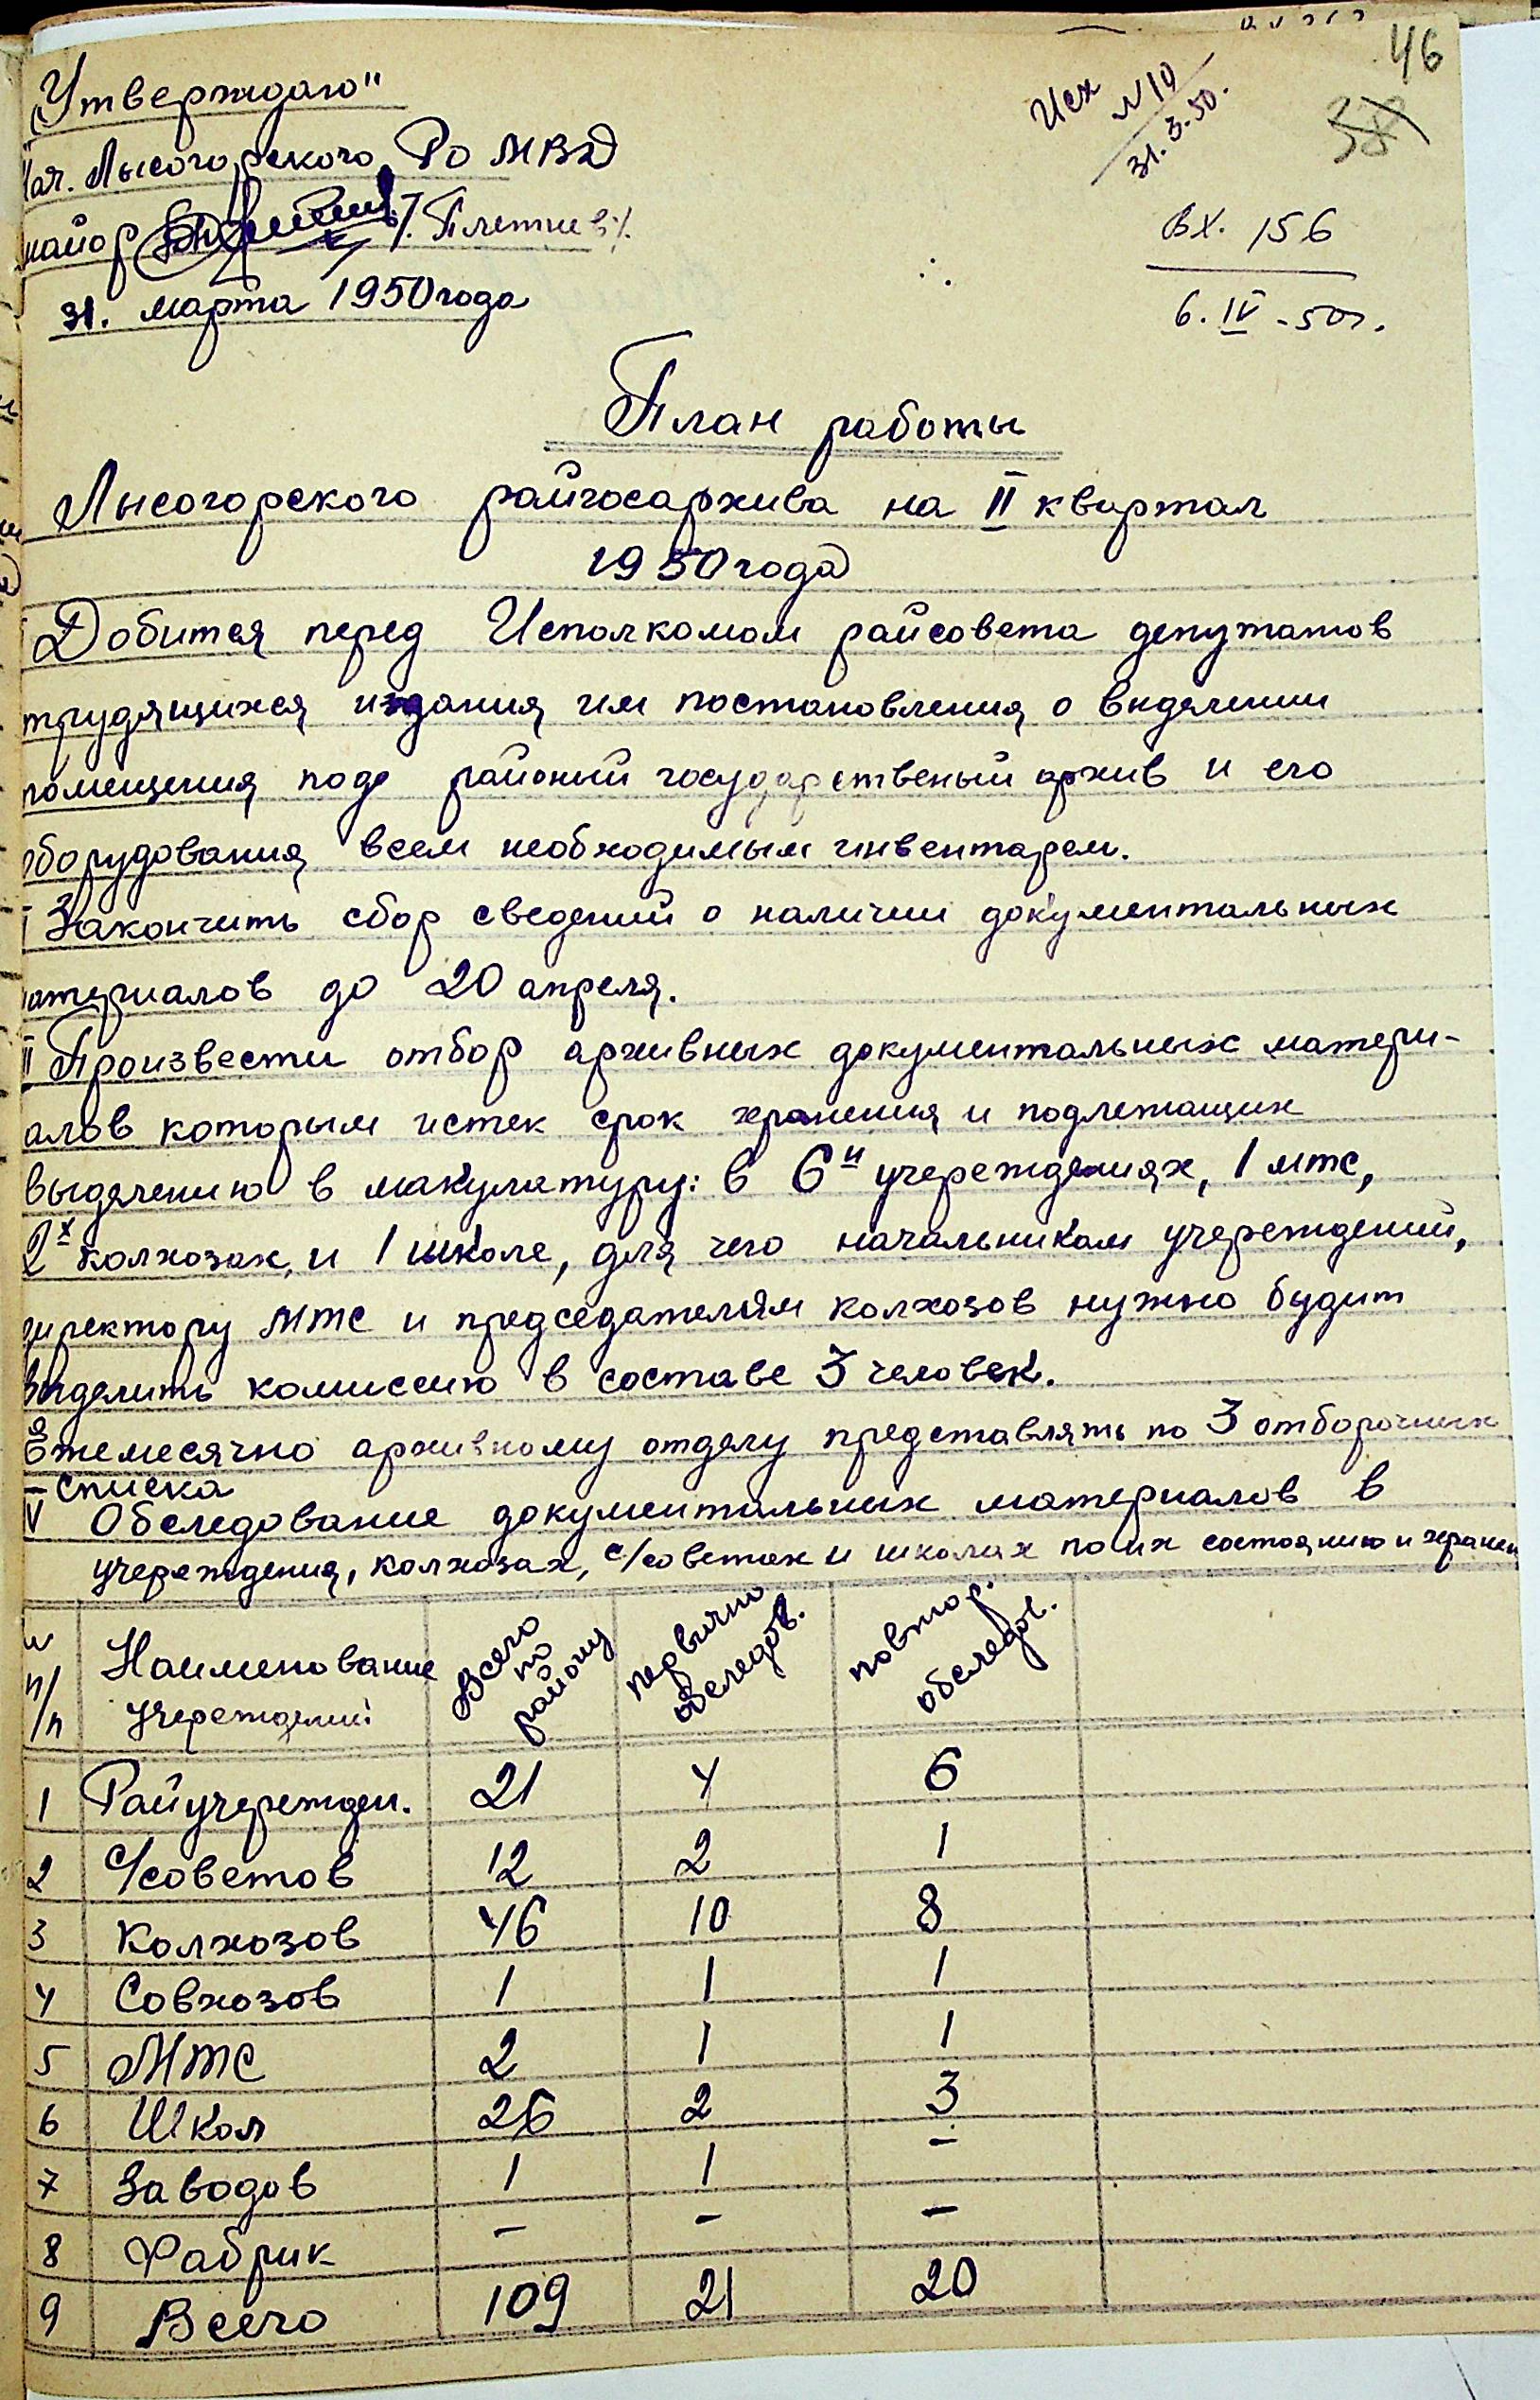 46
Исх №19
31.3.50.
„Утверждаю"
ач. Лысогорского Ро МВД
майор /. Плетнев /.
31. марта 1950 года
вх. 156
6. IV - 50г.
План работы
Лысогорского райгосархива на II квартал
1950 года
Добится перед Исполкомом райсовета депутатов
трудящихся издания им постановления о выделении
помещения подо районый государственый архив и его
оборудования всем необходимым инвентарем.
Закончить сбор сведений о наличии документальных
материалов до 20 апреля.
II Произвести отбор архивных документальных матери-
алов которым истек срок хранения и подлежащих
выделению в макулатуру: в 6и учереждениях, 1 мтс,
2х колхозах, и 1 школе, для чего начальникам учереждений,
директору МТС и председателям колхозов нужно будит
выделить комиссию в составе 3 человек.
Ежемесячно архивному отделу представлять по 3 отборочных
списка
V Обследование документальных материалов в
учереждения, колхозах, с/советах и школах по их состоянию и хранен
п/п Наименование учереждений Всего по району первично обследов. повтор. обследов.
1 Райучережден. 21 4 6
2 С/советов 12 2 1
3 Колхозов 46 10 8
4 Совхозов 1 1 1
5 МТС 2 1 1
6 Школ 26 2 3
7 Заводов 1 1 -
8 Фабрик - - -
9 Всего 109 21 20